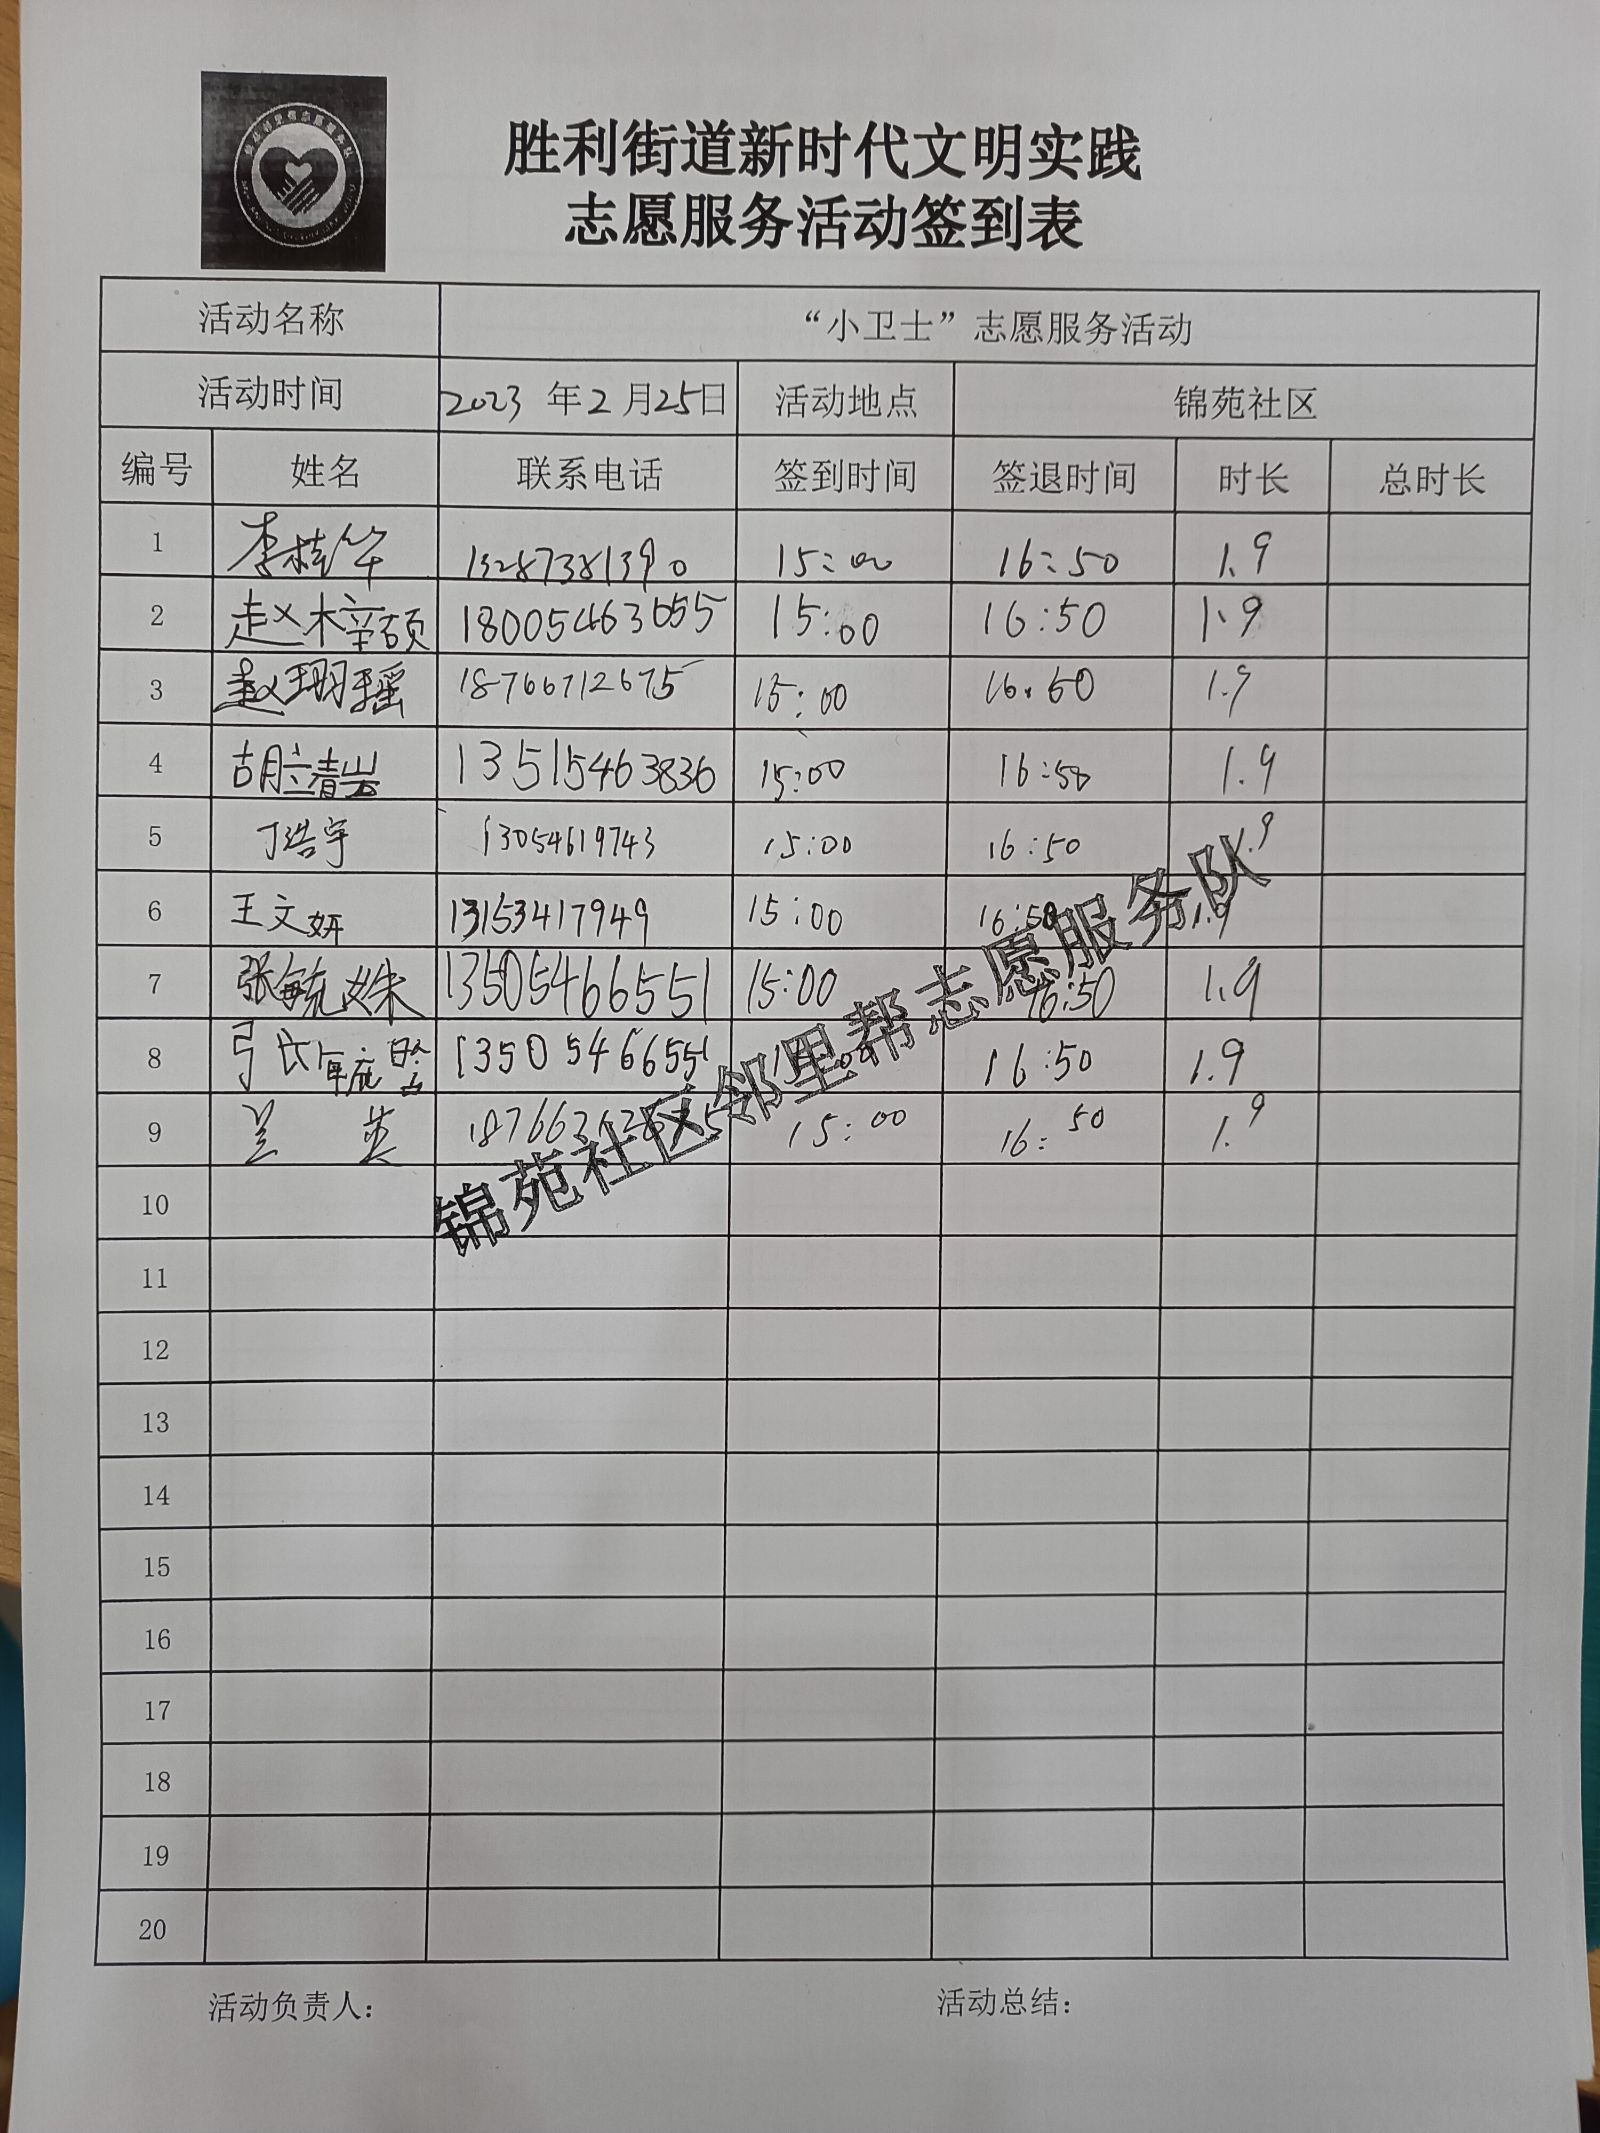 胜利街道新时代文明实践
志愿服务活动签到表
活动名称 “小卫士”志愿服务活动
活动时间 2023 年2月25日 活动地点 锦苑社区
编号 姓名 联系电话 签到时间 签退时间 时长 总时长
1 李桂华 15:00 16:50 1.9
2 赵梓硕 18005463655 15:00 16:50 1.9
3 赵珊瑶 18766712675 15:00 16:50 1.9
4 胡靖岩 13515463836 15:00 16:50 1.9
5 丁浩宇 13054619743 15:00 16:50 1.9
6 王文妍 13153417949 15:00 16:50 1.9
7 张毓姝 13505466551 15:00 16:50 1.9
8 13505466551 16:50 1.9
9 兰英 15:00 16:50 1.9
锦苑社区邻里帮志愿服务队
10
11
12
13
14
15
16
17
18
19
20
活动负责人: 活动总结: